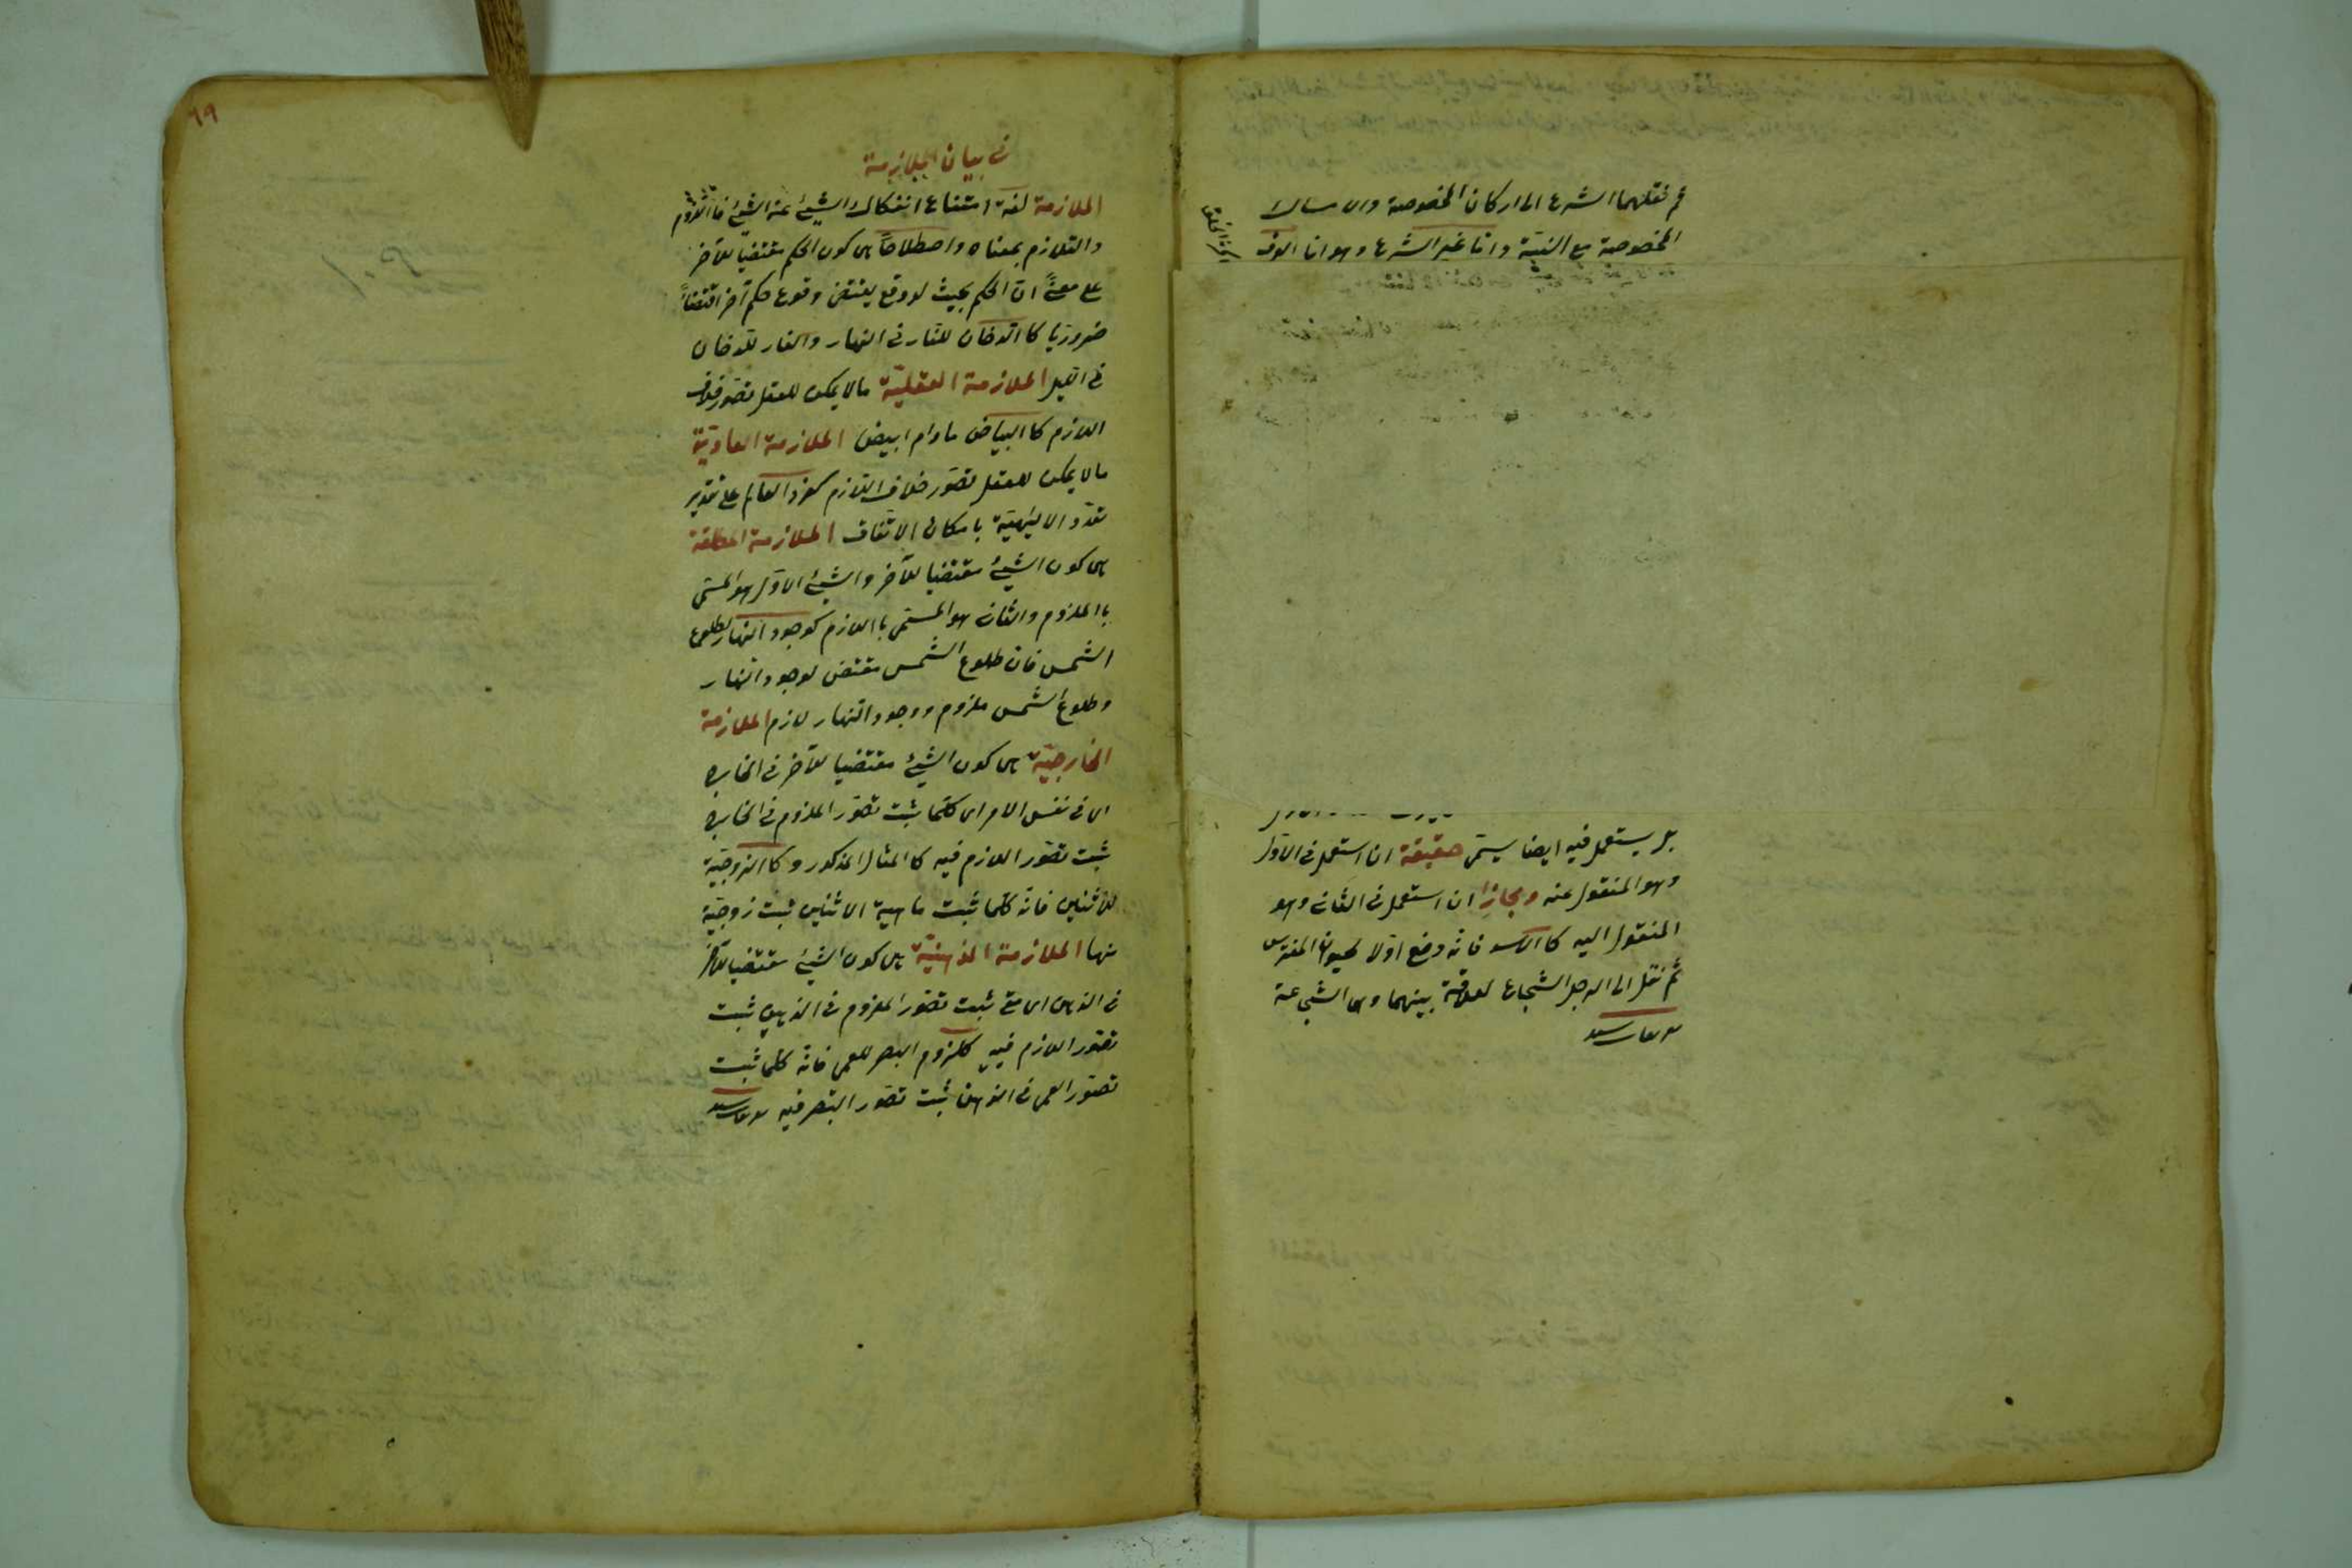 ثم نقلهما الشرع الى اركان المخصوصة والامساك
المخصوصة مع النية واما غير الشرع وهو اما العرف
بل يستعمل فيه ايضا يسمّى حقيقة ان استعمل فى الاوّل
وهو المنقول عنه ومجازا ان استعمل فى الثانى وهو
المنقول اليه كا الاسد فانّه وضع اوّلا لحيوان المفترس
ثمّ نقل الى الرجل الشجاع لعلاقة بينهما وهى الشجاعة
٩٩
فى بيان الملازمة
الملازمة لغة امتناع انفكاك الشيئ عن الشيئ فا اللزوم
والتلازم بمعناه واصطلاحاً هى كون الحكم مقتضيا للآخر
على معنىً انّ الحكم بحيث لو وقع يقتضى وقوع حكم آخر اقتضاءً
ضروريّا كا الدخان للنّار فى النهار والنار للدخان
فى اليل الملازمة العقليّة مالا يمكن للعقل تصوّر خلاف
اللازم كا البياض مادام ابيض الملازمة العاديّة
مالا يمكن للعقل تصوّر خلاف اللازم كفساد العالم على تقدير
تعدّد الالٰهيّة بامكان الاتّفاق الملازمة المطلقة
هى كون الشيئ مقتضيا للآخر والشيئ الاوّل هو المسمّى
با الملزوم والثانى هو المسمّى با اللازم كوجود النهار لطلوع
الشمس فان طلوع الشمس مقتض لوجود النهار
وطلوع الشمس ملزوم ووجود النهار لازم الملازمة
الخارجيّة هى كون الشيئ مقتضيا للآخر فى الخارج
اى فى نفس الامر اى كلّما ثبت تصوّر الملزوم فى الخارج
ثبت تصوّر اللازم فيه كا المثال المذكور وكا الزوجيّة
للاثنين فانّه كلّما ثبت ماهية الاثنين ثبت زوجيّة
منها الملازمة الذهنيّة هى كون الشيئ مقتضيا للآخر
فى الذهن اى متى ثبت تصوّر الملزوم فى الذهن ثبت
تصوّر اللازم فيه كلزوم البصر للعمى فانّه كلّما ثبت
تصوّر العمى فى الذهن ثبت تصوّر البصر فيه